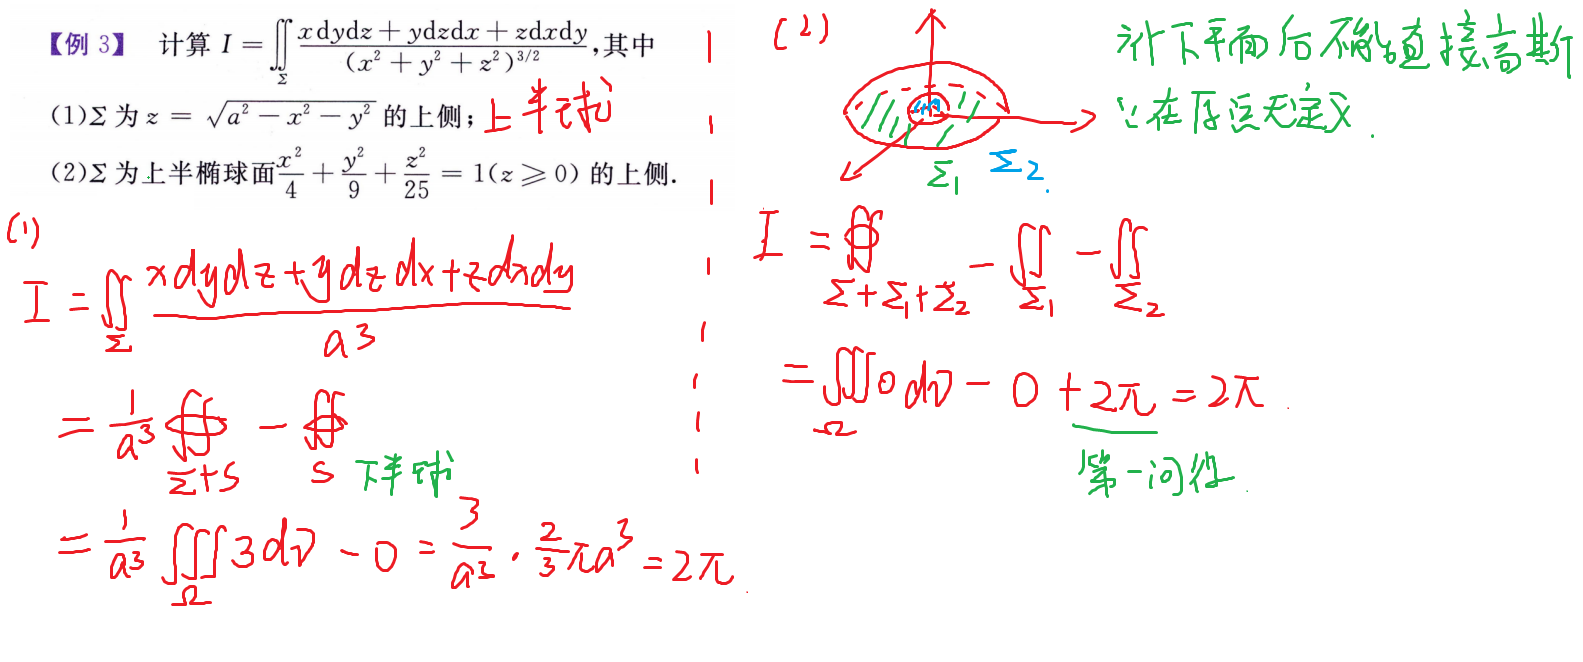 【例 3】 计算 I = ∬_Σ (xdydz + ydzdx + zdxdy)/(x² + y² + z²)^{3/2},其中
(1)Σ 为 z = √(a² − x² − y²) 的上侧; 上半球
(2)Σ 为上半椭球面 x²/4 + y²/9 + z²/25 = 1(z ⩾ 0) 的上侧.
(1)
I = ∬_Σ (xdydz+ydzdx+zdxdy)/a³
= 1/a³ ∯_{Σ+S} − ∯_S 下半球
= 1/a³ ∭_Ω 3dv − 0 = 3/a³ · 2/3 πa³ = 2π.
(2)
Σ₁ Σ₂.
补下平面后不能直接高斯
∵在原点无定义.
I = ∯_{Σ+Σ₁+Σ₂} − ∬_{Σ₁} − ∬_{Σ₂}
= ∭_Ω 0dv − 0 + 2π = 2π.
第一问得.